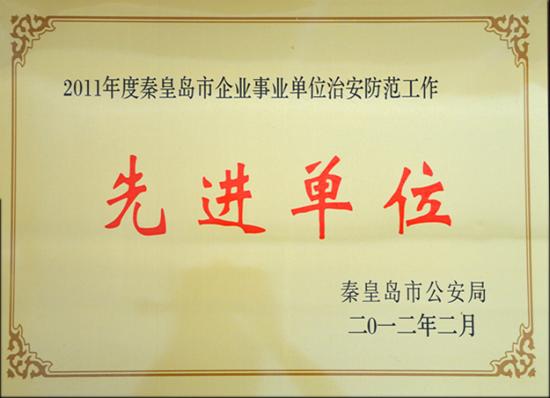 2011年度秦皇岛市企业事业单位治安防范工作
先进单位
秦皇岛市公安局
二0一二年二月